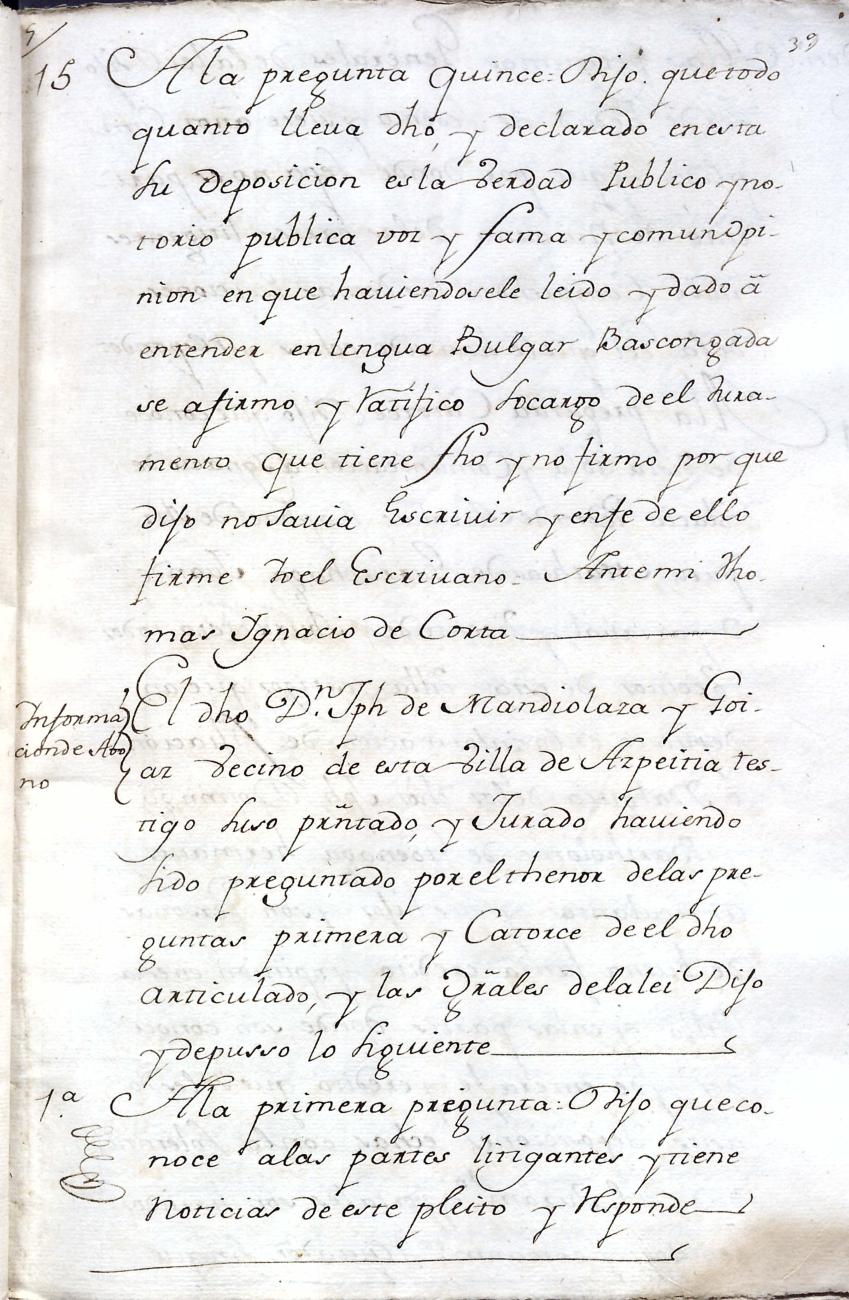 39
15 A la pregunta quince: Dijo. que todo
quanto lleva dho, y declarado en esta
su deposicion es la verdad Publico y no-
torio publica voz y fama y comun opi-
nion en que haviendosele leido y dado â
entender en lengua Bulgar Bascongada
se afirmo y Ratifico so cargo de el Jura-
mento que tiene fho y no firmo por que
dijo no savia Escrivir y en fe de ello
firme Yo el Escrivano. Ante mi Tho-
mas Ignacio de Corta
El dho Dn. Jph de Mandiolaza y Goi-
Informa
cion de Abo
no
az vecino de esta Villa de Azpeitia tes-
tigo suso prñtado, y Jurado haviendo
sido preguntado por el thenor de las pre-
guntas primera y Catorce de el dho
articulado, y las Grãles de la lei Dijo
y depusso lo siguiente
1.a A la primera pregunta: Dijo que co-
noce a las partes litigantes y tiene
Noticias de este pleito y Responde